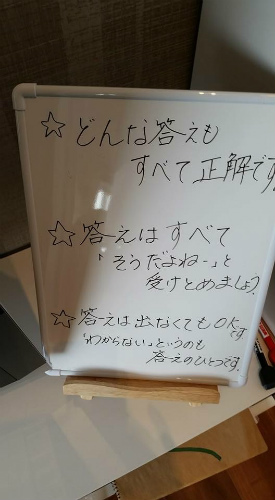 ☆どんな答えも
すべて正解です
☆答えはすべて
「そうだよねー」と
受けとめましょう
☆答えは出なくてもOKです
「わからない」というのも
答えのひとつです。